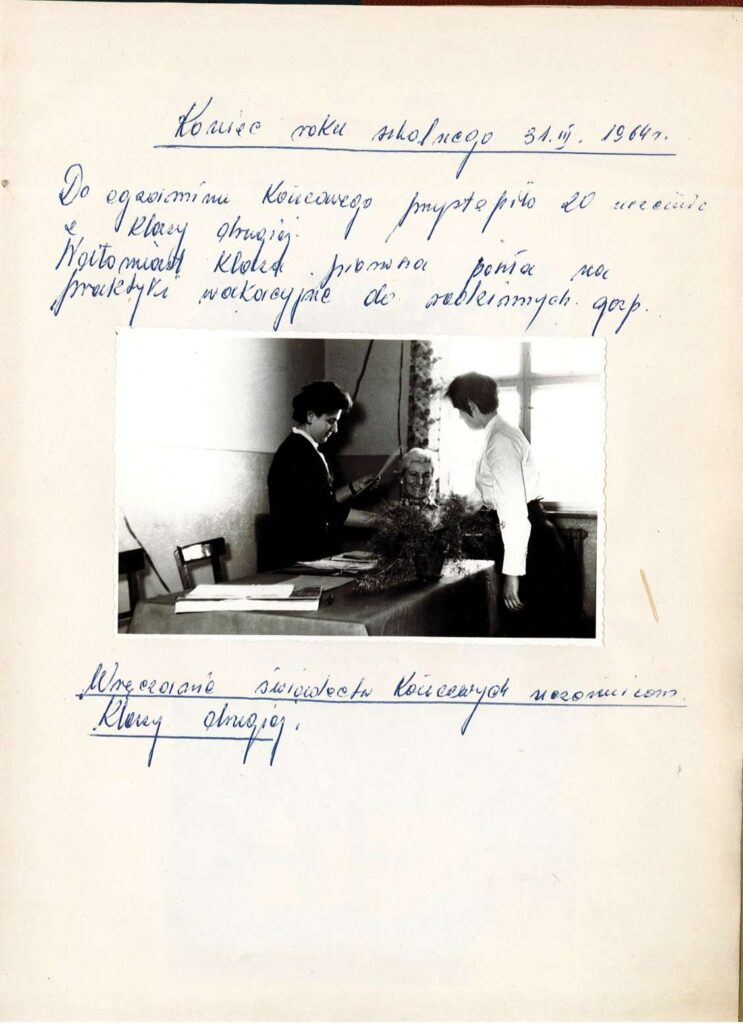 Koniec roku szkolnego 31.III. 1964r.
Do egzaminu Końcowego przystąpiło 20
z Klasy drugiej.
Natomiast Klasa pierwsza poszła na
praktyki wakacyjne do rodzinnych gosp.
Wręczanie świadectw Końcowych uczennicom
Klasy drugiej.